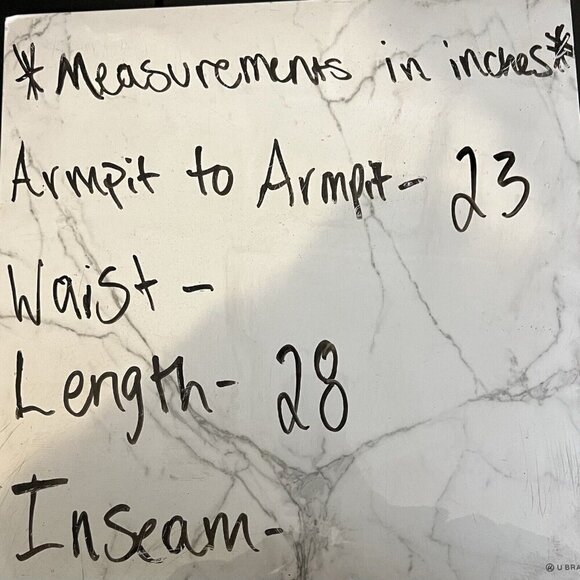 *Measurements in inches*
Armpit to Armpit- 23
Waist -
Length- 28
Inseam-
U BRA